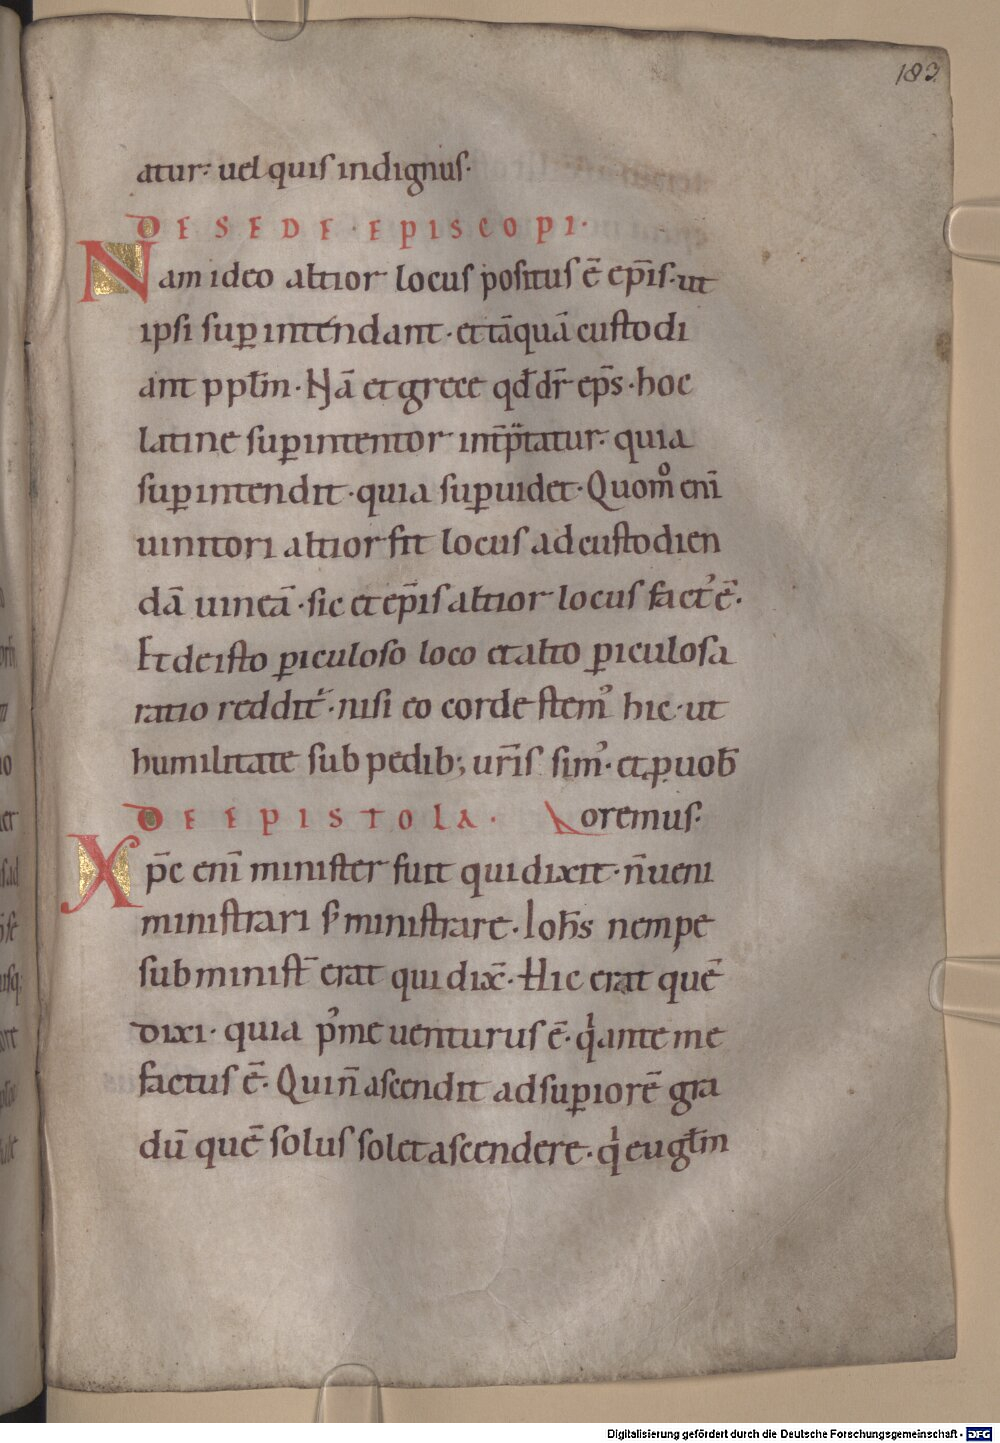 183
atur: uel quis indignus·
DE SEDE · EPISCOPI·
Nam ideo altior locus positus ē ep̄is· ut
ipsi suꝑ intendant · et tāquā custodi
ant ppl̄m · Nā et grece qd̄ dr̄ ep̄s · hoc
latine suꝑintentor int̄p̄tatur· quia
suꝑintendit · quia suꝑuidet · Quom̊ eni̅
uinitori altior fit locus ad custodien
dā uineā · sic et ep̄is altior locus fact᾽ ē·
Et de isto ꝑiculoso loco et alto ꝑiculosa
ratio reddit᷑ · nisi eo corde stem᾽ hic · ut
humilitate sub pedib; ur̄is sim᾽· et ꝑ uob̄
DE EPISTOLA · oremus·
Xp̄c eni̅ minister fuit qui dixit · n̄ ueni
ministrari s᾽ ministrare · Ioh̄s nempe
sub minist̄ erat qui dix̄· Hic erat quē
dixi · quia p᾽ me uenturus ē · qͥ ante me
factus ē · Qui n̄ ascendit ad suꝑiorē gra
dū quē solus solet ascendere · qͥ eugl̄m
Digitalisierung gefördert durch die Deutsche Forschungsgemeinschaft - DFG